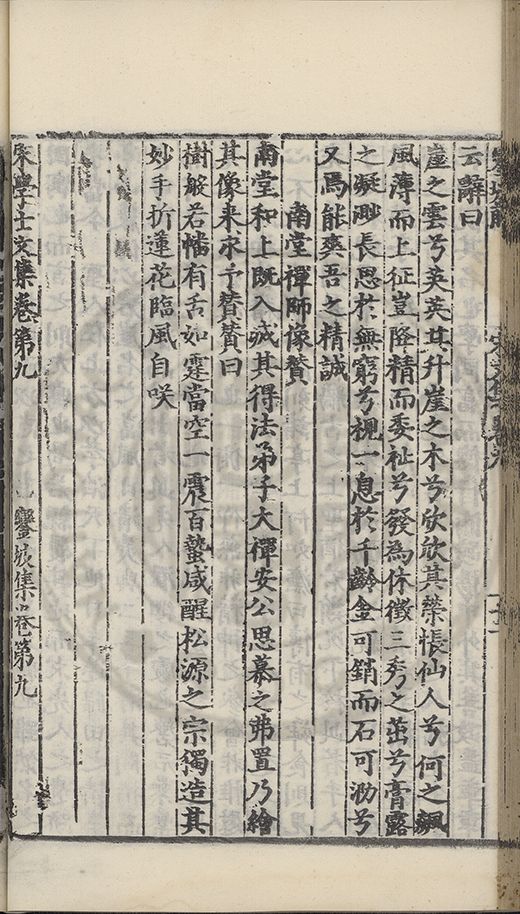 云辭曰
崖之雲兮英英其升崖之木兮欣欣其榮悵仙人兮何之飆
風薄而上征豈降精而委祉兮發為休徵三秀之茁兮膏露
之凝眇長思於無窮兮視一息於千齡金可銷而石可泐兮
又焉能爽吾之精誠
南堂禪師像贊
南堂和上既入滅其得法弟子大禪安公思慕之弗置乃繪
其像来求予贊贊曰
樹般若幢有舌如霆當空一震百蟄咸醒松源之宗獨造其
妙手折蓮花臨風自咲
宋學士文集卷第九
鑾坡集卷第九